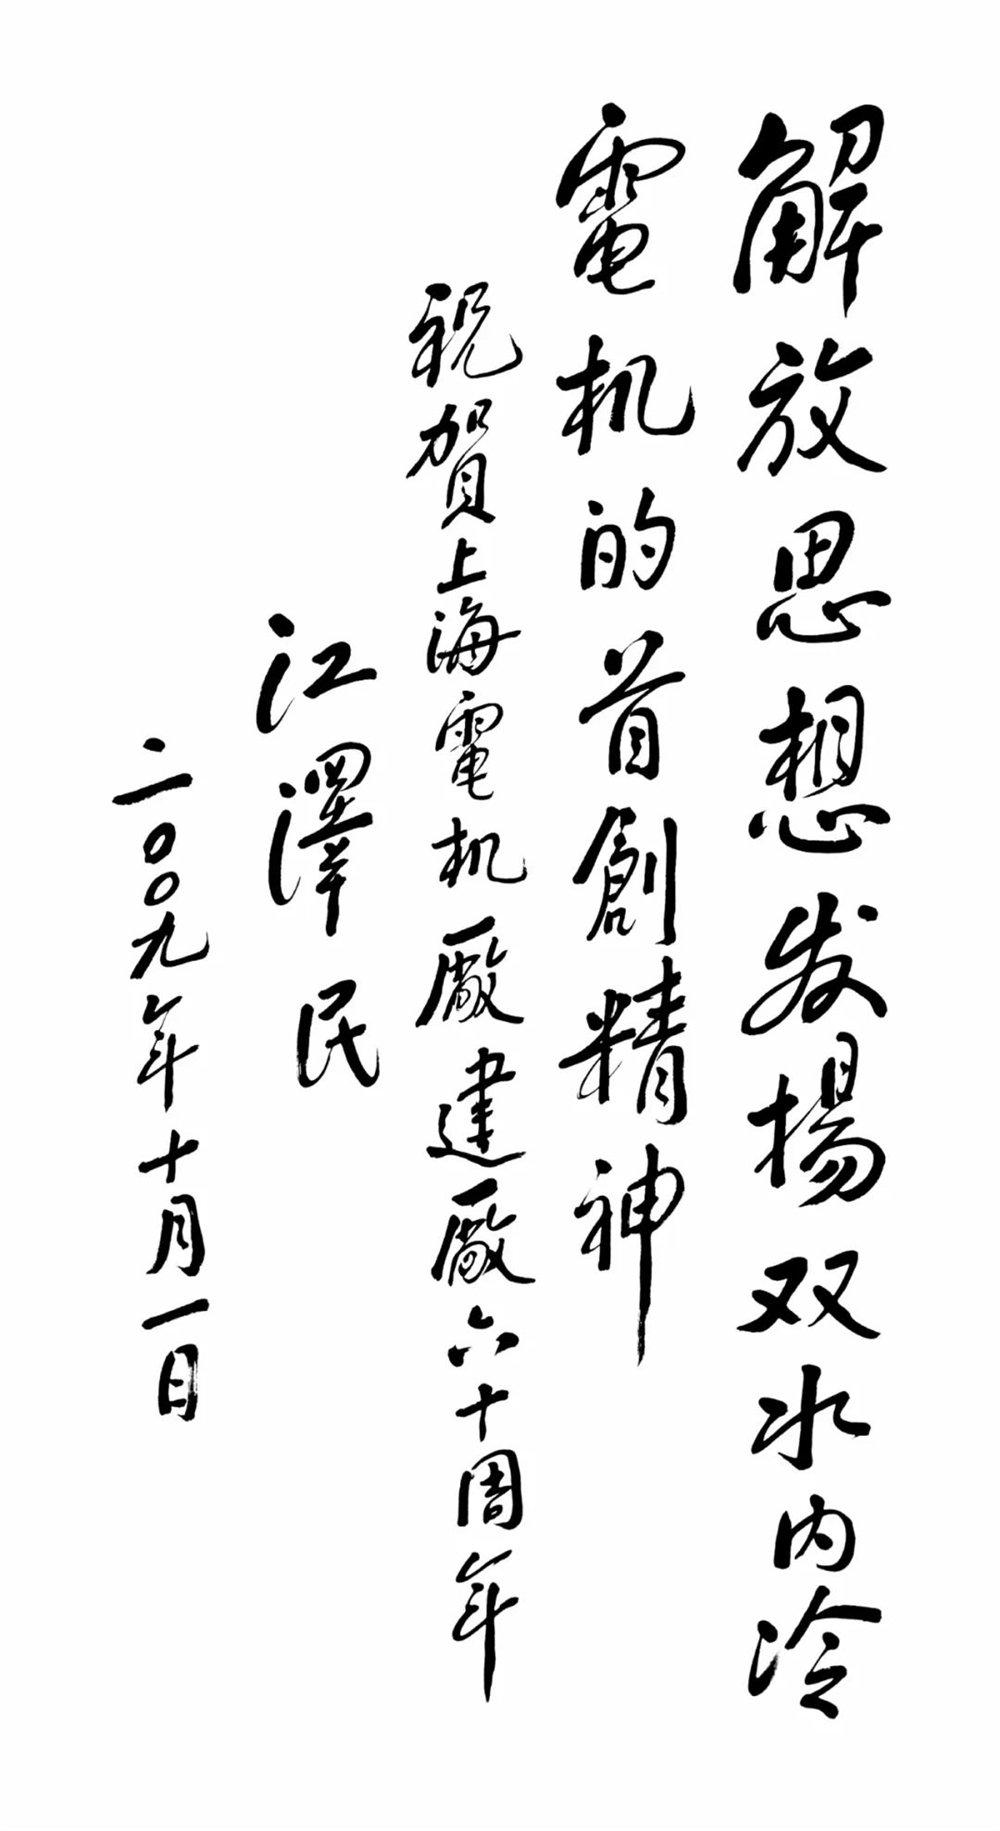 解放思想发揚双水内冷
電机的首創精神
祝賀上海電机廠建廠六十周年
江澤民
二〇〇九年十月一日